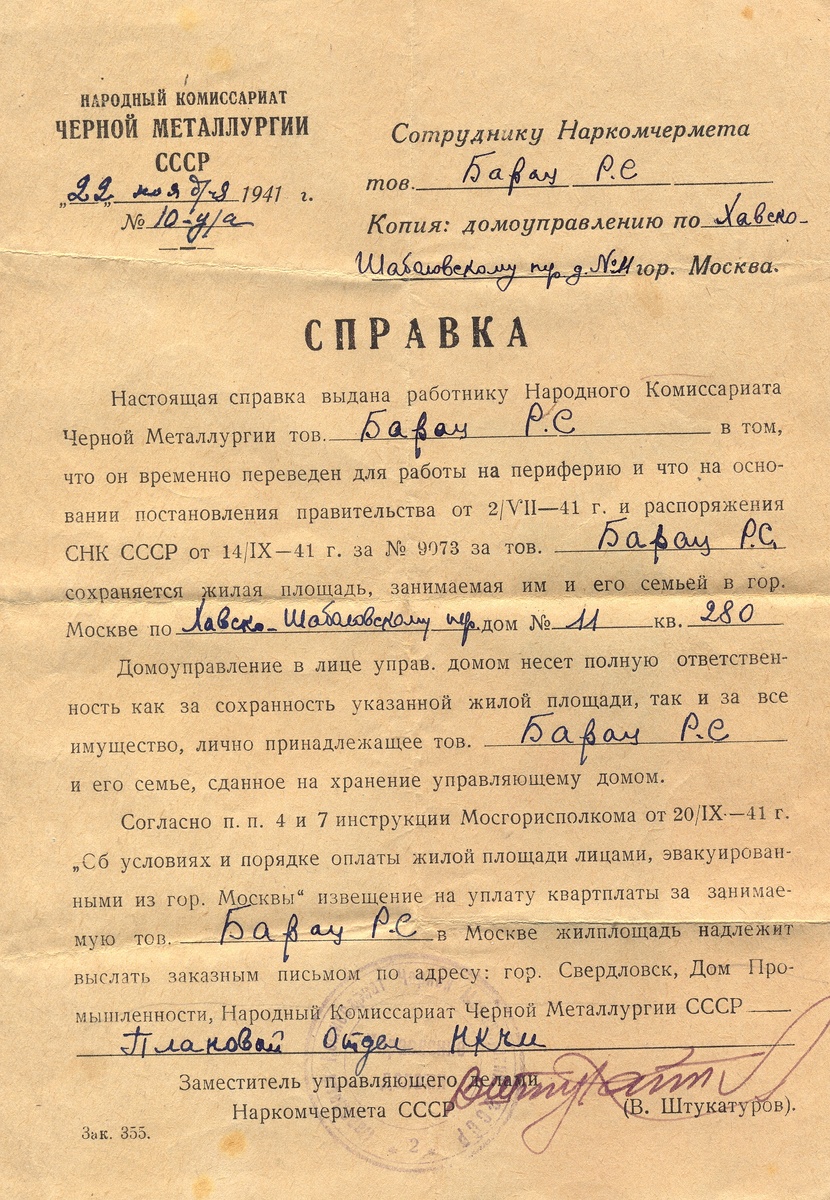 НАРОДНЫЙ КОМИССАРИАТ
ЧЕРНОЙ МЕТАЛЛУРГИИ
СССР
„22„ ноября 1941 г.
№ 10-у/а
Сотруднику Наркомчермета
тов. Барац Р.С
Копия: домоуправлению по Хавско-
Шаболовскому пер. д. №11 гор. Москва.
СПРАВКА
Настоящая справка выдана работнику Народного Комиссариата
Черной Металлургии тов. Барац Р.С в том,
что он временно переведен для работы на периферию и что на осно-
вании постановления правительства от 2/VII—41 г. и распоряжения
СНК СССР от 14/IX—41 г. за № 9073 за тов. Барац Р.С.
сохраняется жилая площадь, занимаемая им и его семьей в гор.
Москве по Хавско-Шаболовскому пер. дом № 11 кв. 280
Домоуправление в лице управ. домом несет полную ответствен-
ность как за сохранность указанной жилой площади, так и за все
имущество, лично принадлежащее тов. Барац Р.С
и его семье, сданное на хранение управляющему домом.
Согласно п. п. 4 и 7 инструкции Мосгорисполкома от 20/IX—41 г.
„Сб условиях и порядке оплаты жилой площади лицами, эвакуирован-
ными из гор. Москвы“ извещение на уплату квартплаты за занимае-
мую тов. Барац Р.С в Москве жилплощадь надлежит
выслать заказным письмом по адресу: гор. Свердловск, Дом Про-
мышленности, Народный Комиссариат Черной Металлургии СССР
Плановой Отдел НКЧМ
Заместитель управляющего делами
Наркомчермета СССР (В. Штукатуров).
Зак. 355.